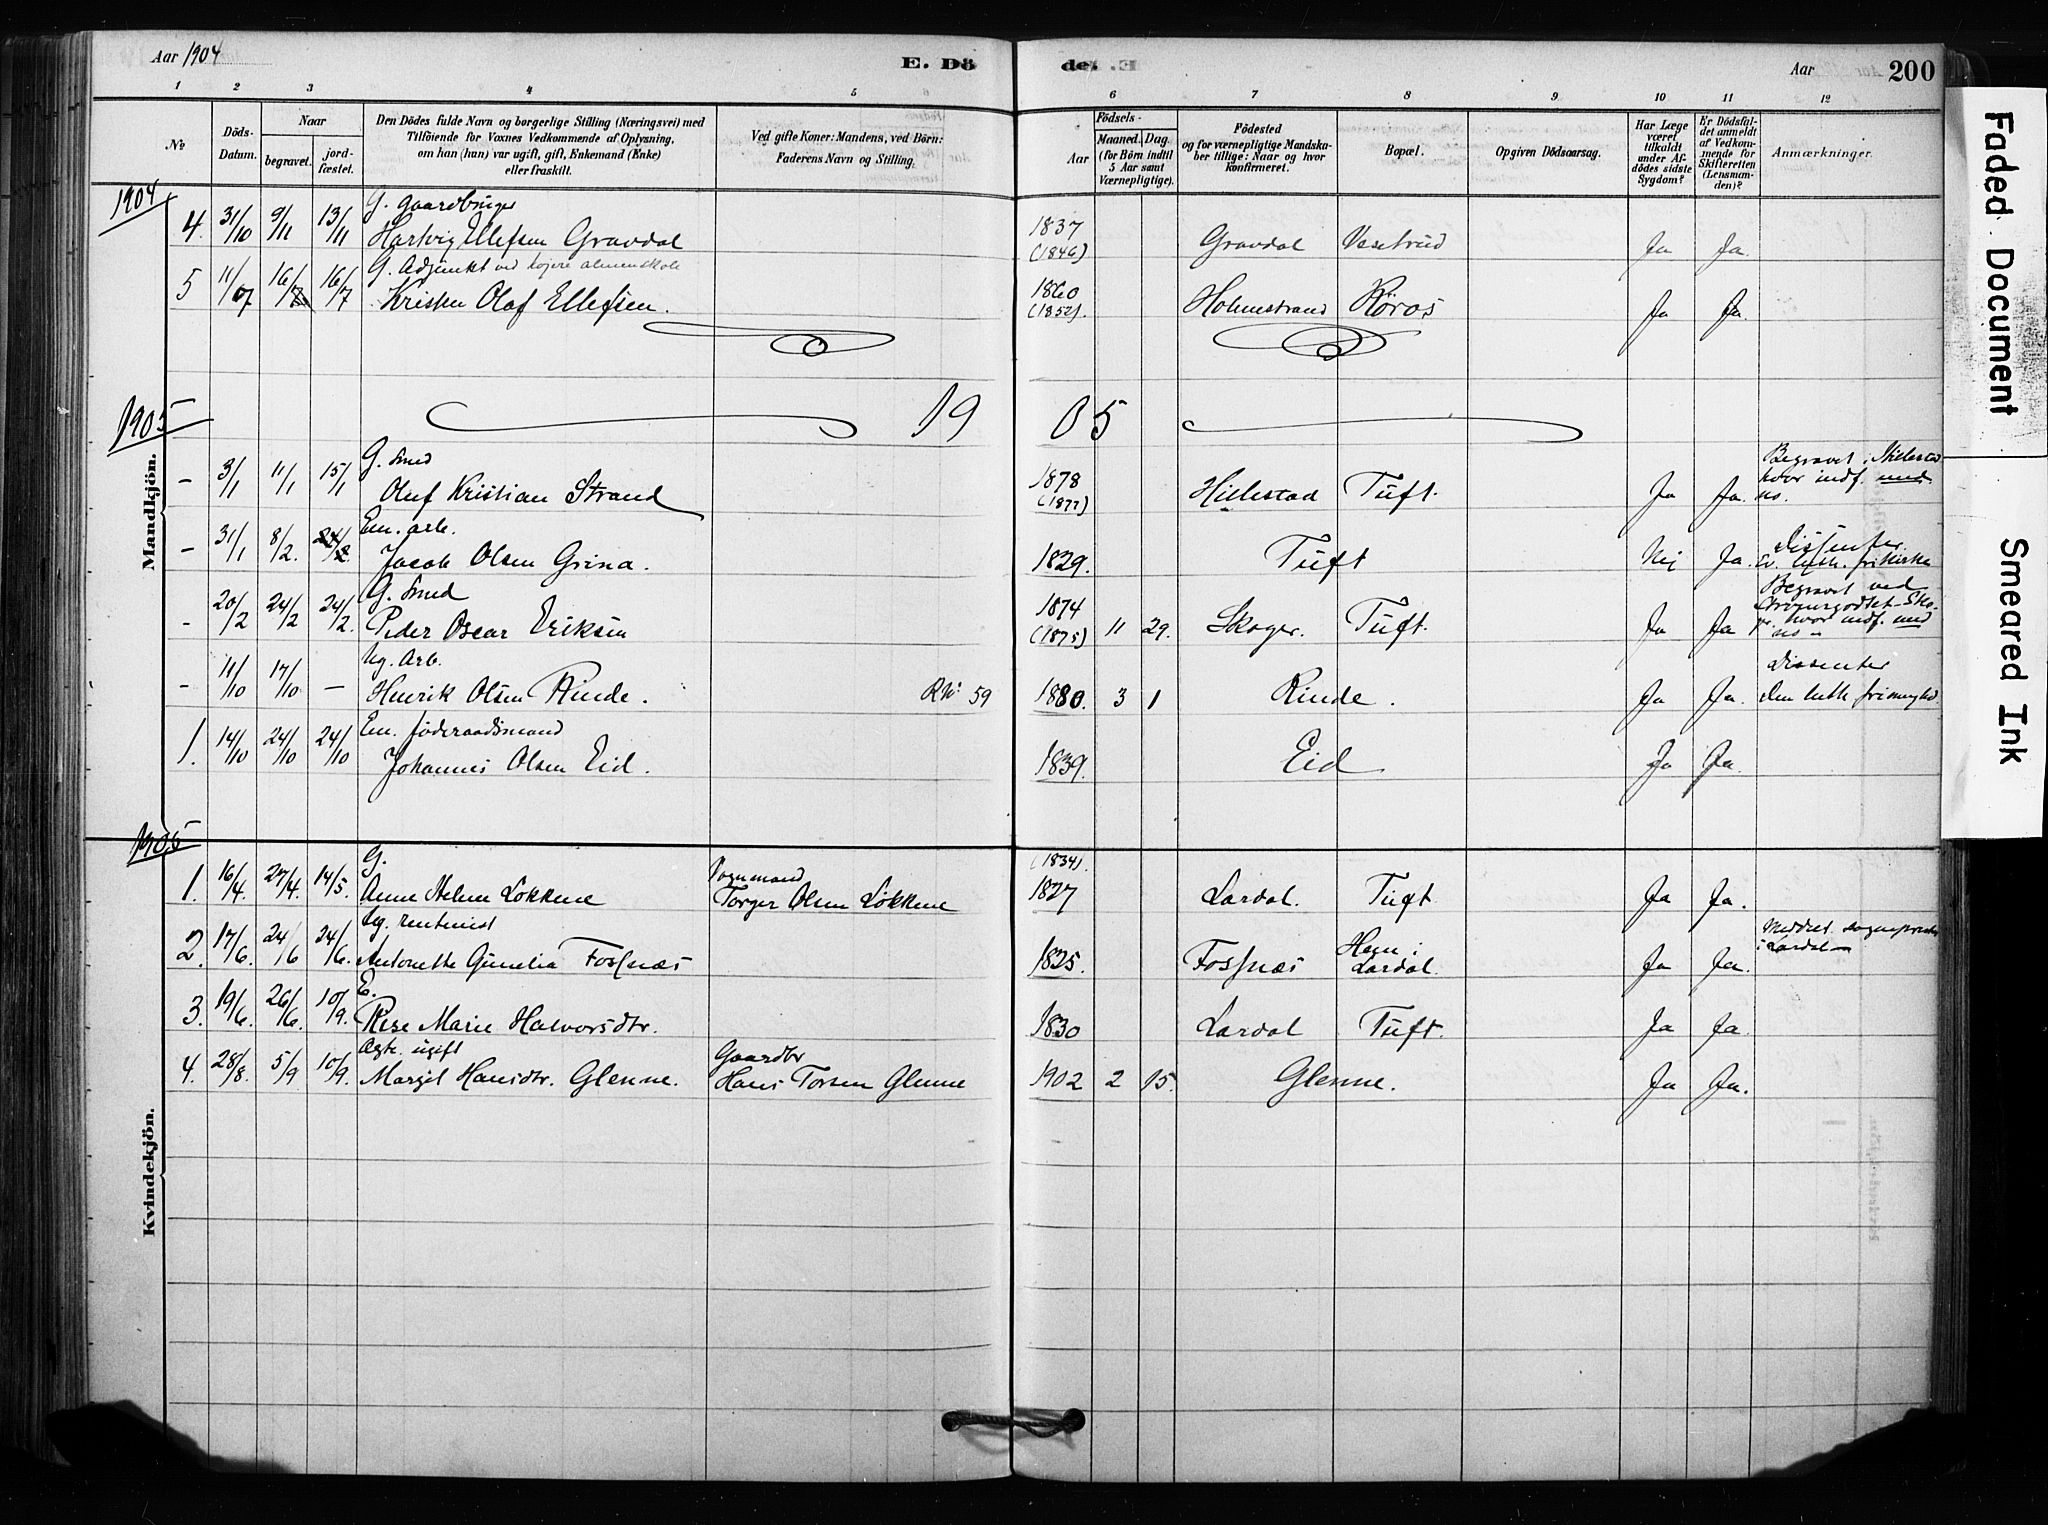 Aar 1904 E. Dö de. Aar 200
1 2 3 4 5 6 7 8 9 10 11 12
№ Döds-Datum. Naar begravet. jord-fæstet. Den Dödes fulde Navn og borgerlige Stilling (Næringsvei) med Tilföiende for Voxnes Vedkommende af Oplysning, om han (hun) var ugift, gift, Enkemand (Enke) eller fraskilt. Ved gifte Koner: Mandens, ved Börn: Faderens Navn og Stilling. Födsels- Aar Maaned. Dag. (for Börn indtil 5 Aar samt Værnepligtige). Födested og for værnepligtige Mandskaber tillige: Naar og hvor Konfirmeret. Bopæl. Opgiven Dödsaarsag. Har Læge været tilkaldt under Afdödes sidste Sygdom? Er Dödsfaldet anmeldt af Vedkommende for Skifteretten (Lensmanden)? Anmærkninger.
1904
G. gaardbruger
4. 31/10 9/11 13/11 Hartvig Ellefsen Gravdal 1837 (1846) Gravdal Vesetrud Ja Ja.
G. Adjunkt ved højere almenskole
5 11/07 16/7 16/7 Kristen Olaf Ellefsen. 1860 (1852). Holmestrand Röros Ja Ja.
1905 19 05
Mandkjön.
G. Smed
- 3/1 11/1 15/1 Oluf Kristian Strand 1878 (1877) Hillestad Tuft. Ja Ja. Begravet i Hillestad hvor indf. med no.
Em. arb.
- 31/1 8/2. 24/2. Jacob Olsen Grina. 1829. Tuft Nej Ja. Dissenter Ev. luth. frikirke
G. Smed
- 20/2 24/2 24/2. Peder Oscar Eriksen 1874 (1875) 11 29. Skoger. Tuft. Ja Ja Begravet ved Strömsgodset - Skoger. hvor indf. med no -
Ug. Arb.
- 11/10 17/10 - Henrik Olsen Rinde. R № 59 1880. 3 1 Rinde. Ja Ja. Dissenter Den luth. frimenighed.
Em. föderaadsmand
1. 14/10 24/10 24/10 Johannes Olsen Eid. 1839. Eid Ja Ja.
1905
Kvindekjön.
G.
1. 16/4. 27/4. 14/5. Anne Helene Lökkene Torger Olsen Lökkene (1834). 1827 Lardal. Tuft Ja Ja.
Ug. rentenist
2. 17/6. 24/6 24/6. Antonette Gunelia Fossnæs 1825. Fossnæs Hem i Lardal. Ja Ja. Meddelt sogneprest i Lardal -
E.
3. 19/6. 26/6. 10/9. Rise Marie Halvorsdtr. 1830 Lardal Tuft. Ja Ja.
Ægte. ugift Gaardbr
4. 28/8. 5/9 10/9. Margit Hansdtr. Glenne. Hans Torsen Glenne 1902 2 15. Glenne. Ja Ja.
Faded Document
Smeared Ink